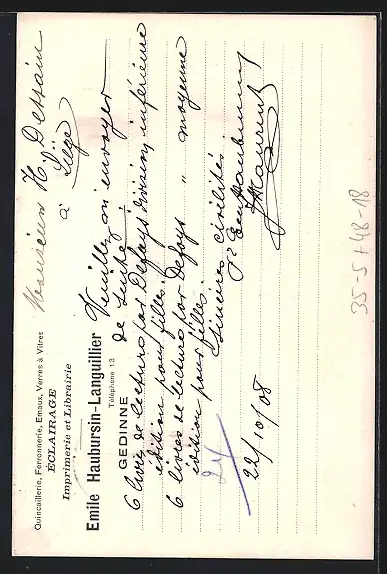 Quincaillerie, Ferronnerie, Emaux, Verres à Vitres
ÉCLAIRAGE
Imprimerie et Librairie
Emile Haubursin-Languillier
Téléphone 13
GEDINNE
Monsieur H. Dessain
à Liège
Veuillez m'envoyer
de suite:
6 livres de lecture par Defays division inférieure
édition pour filles.
6 livres de lecture par Defays " moyenne
édition pour filles.
Sincères civilités
Pr Em Haubursin
22/10/08
35-5+48-18